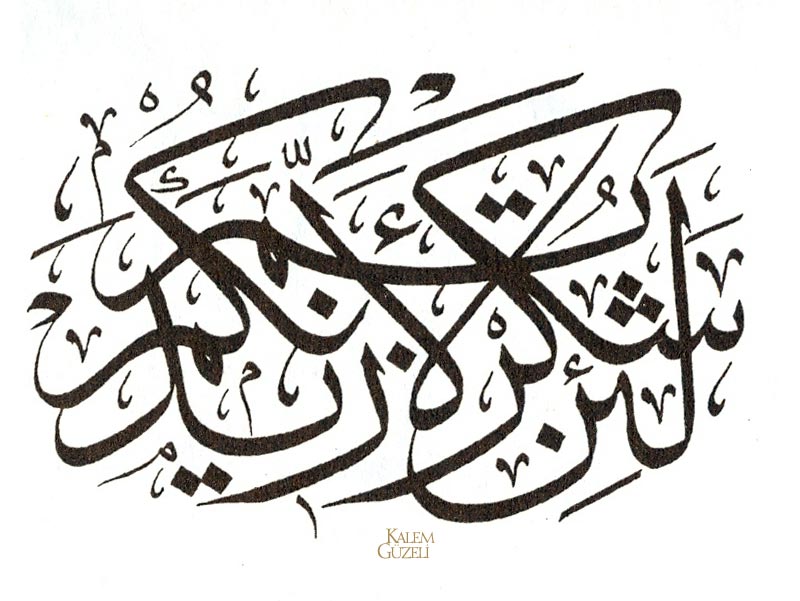 لَئِنْ شَكَرْتُمْ لَأَزِيدَنَّكُمْ
KALEM
GÜZELİ